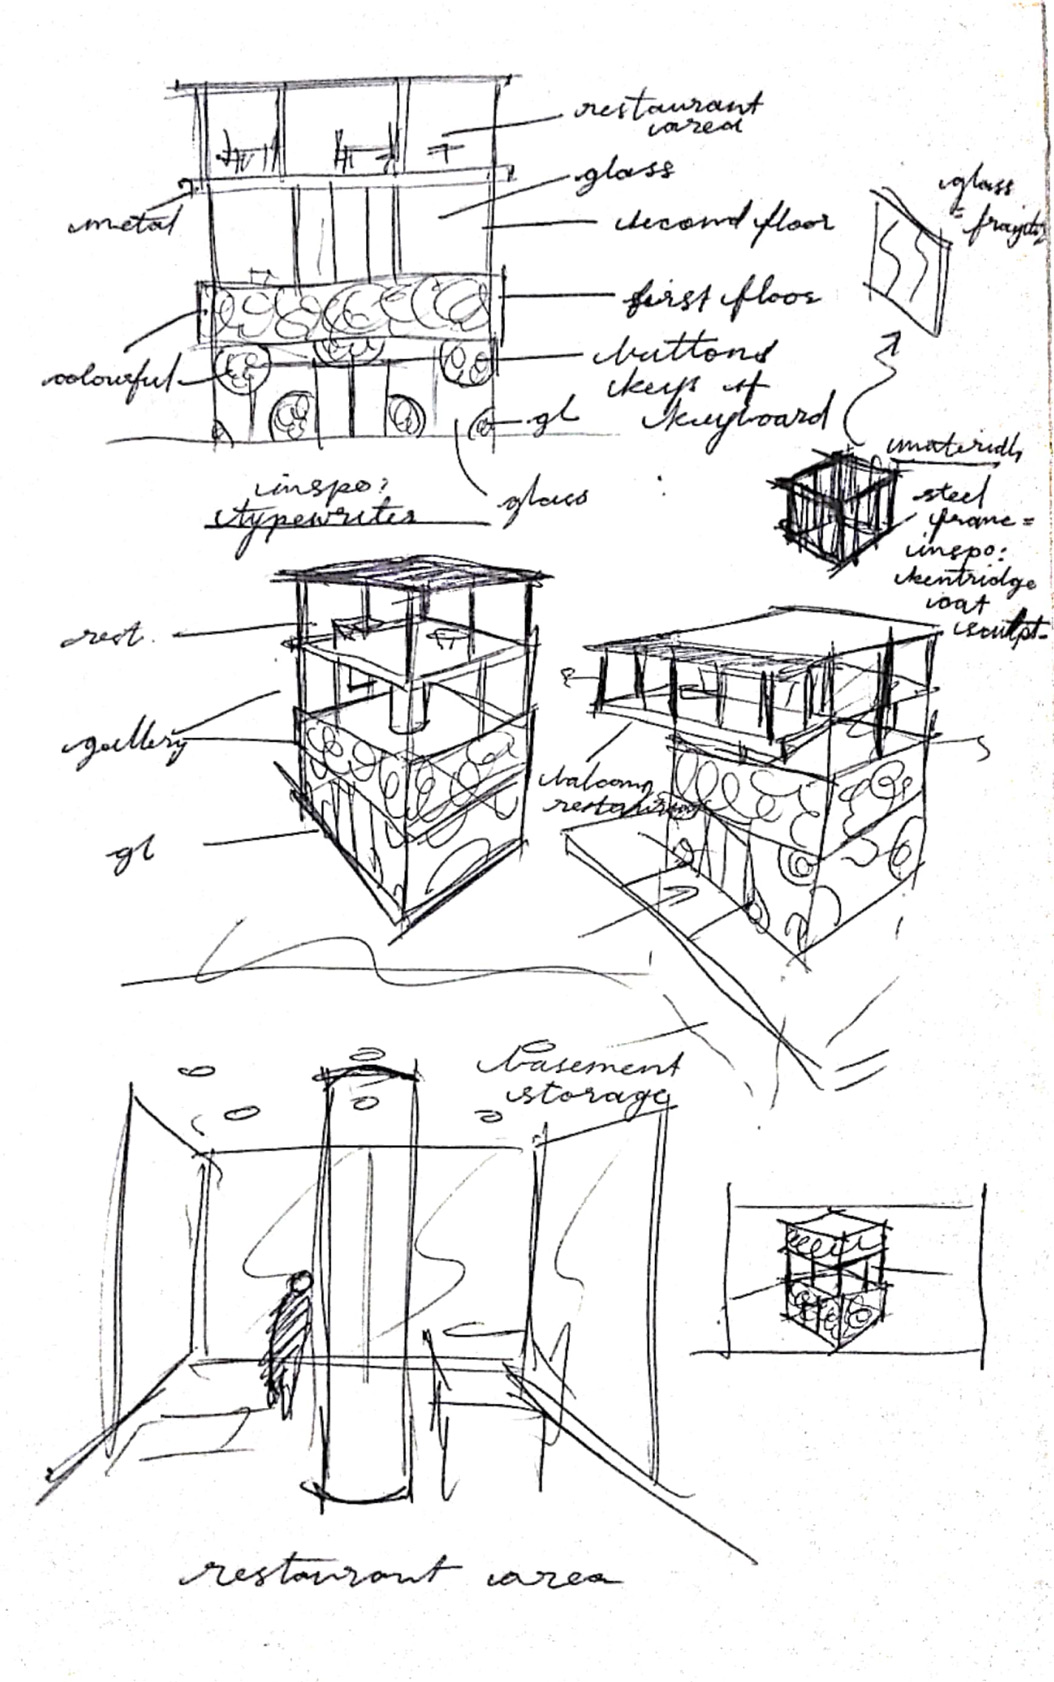 restaurant
area
glass
metal
second floor
first floor
colourful
buttons
keys of
keyboard
gl
glass
inspo:
typewriter
glass
=
materials
steel
frame =
inspo:
kentridge
coat
sculpt.
rest.
gallery
gl
balcony
restaurant
basement
storage
restaurant area